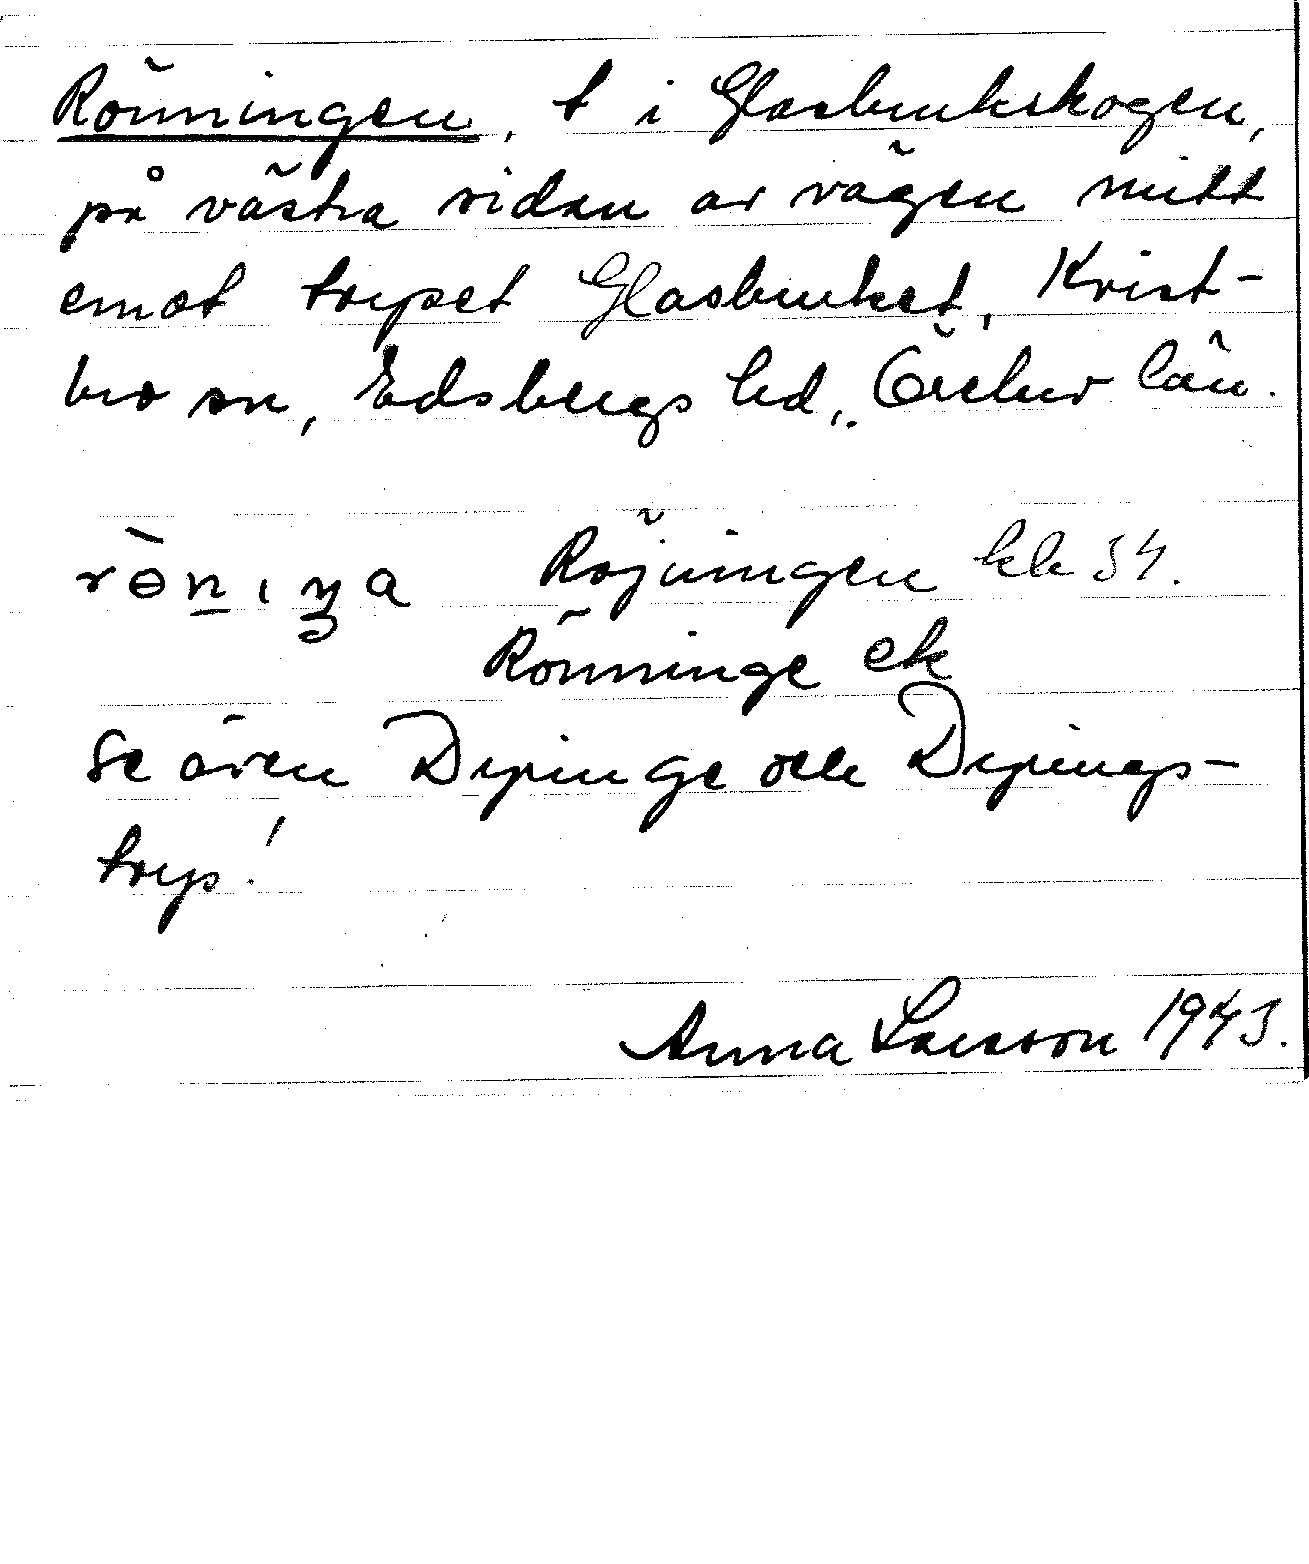 Rönningen, t i Glasbrukskogen,
på västra sidan av vägen mitt
emot torpet Glasbruket, Kvist-
bro sn, Edsbergs hd, Örebro län.
rö̀niŋa Röjningen hk 54.
Rönninge ek
Se även Dypinge och Dypings-
torp!
Anna Larsson 1943.